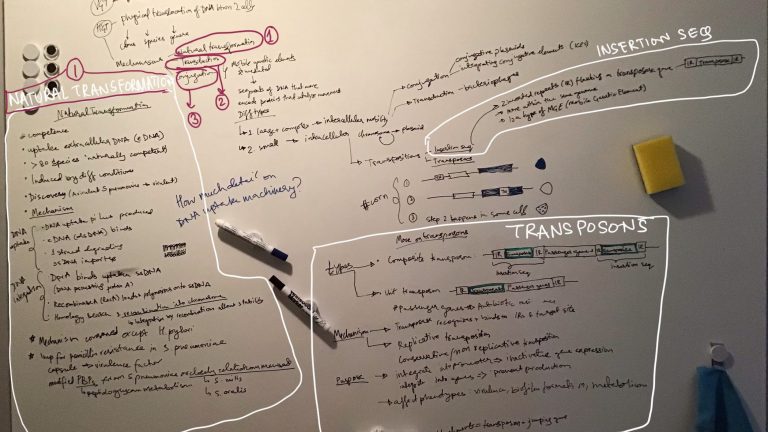 VGT
HGT → physical translocation of DNA btwn 2 cells
clone species genera
Mechanisms
Natural transformation ①
Transduction ②
Conjugation ③
Mobile genetic elements
segments of DNA that move
encode proteins that catalyze movement
Diff types
↳ 1. larger complex → intercellular mobility
↳ 2. small → intracellular
chromosome → plasmid
Conjugation
conjugative plasmids
integrating conjugative elements (ICEs)
Transduction - bacteriophages
Transpositions
Insertion seq
Transposons
INSERTION SEQ
2 inverted repeats (IR) flanking a transposase gene
IR Transposase IR
move within the same genome
is a type of MGE (mobile Genetic Element)
#corn
①
②
③ step 2 happens in some cells
①
NATURAL TRANSFORMATION
Natural Transformation
# competence
uptake extracellular DNA (eDNA)
> 80 species 'naturally competent'
Induced by diff conditions
Discovery (Avirulent S pneumoniae → virulent)
* Mechanism
DNA uptake
DNA uptake pilus produced
eDNA (as dsDNA) binds
1 strand degraded
ssDNA imported
DNA integration
DprA binds uptaken ssDNA
(DNA processing protein A)
Recombinase (RecA) loader polymerises onto ssDNA
Homology search → recombination into chromosome
↳ integration by recombination allows stability
* Mechanism conserved except H. pylori
* Imp for penicillin resistance in S. pneumoniae
capsule → virulence factor
modified PBPs from S pneumoniae
↳ peptidoglycan metabolism
↳ S. mitis
↳ S. oralis
How much detail on
DNA uptake machinery?
TRANSPOSONS
More on transposons
Types
Composite transposon
IR Transposase IR Passenger genes
insertion seq
insertion seq.
Unit transposon
IR Transposase Passenger genes IR
# Passenger genes → Antibiotic
Mechanism
Transposase recognizes + binds to IRs & target site
Replicative transposition
Conservative/non replicative transposition
Purpose
integrate into promoter → inactivate gene expression
integrate into genes → prevent production
→ affect phenotypes: virulence, biofilm formation, metabolism